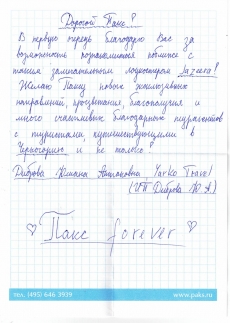 Дорогой Пакс!
В первую очередь благодарю Вас за
возможность познакомиться поближе с
таким замечательным лоукостером Jazeera!
Желаю Паксу новых эксклюзивных
направлений, процветания, благополучия и
много счастливых благодарных турагентов
с туристами, путешествующими в
Черногорию и не только!
Диброва Юлиана Антоновна, Yarko Travel
(ИП Диброва Ю.А)
Пакс forever
тел. (495) 646 3939
www.paks.ru